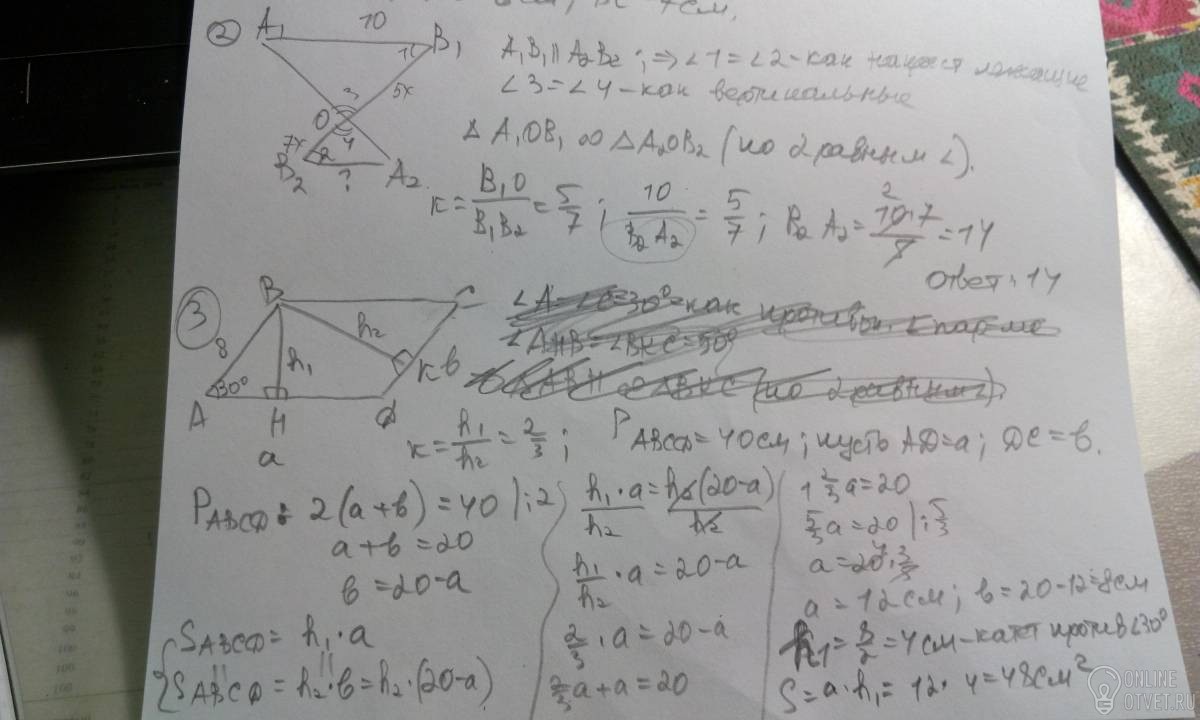 см,
②
A₁ 10 B₁
1
5x
3
O
4
7x
2
B₂ ? A₂
A₁B₁ || A₂B₂ ; => ∠1 = ∠2 - как накрест лежащие
∠3 = ∠4 - как вертикальные
Δ A₁OB₁ ∞ Δ A₂OB₂ (по 2 равным ∠).
к = B₁O/B₁B₂ = 5/7 ; 10/B₂A₂ = 5/7 ; B₂A₂ = 10·7/5 = 14
2
Ответ: 14
③
B C
8 h₁ h₂
30° К в
A H D
a
∠A = ∠C = 30° - как против. ∠ парал-ма
∠AHB = ∠BKC = 90°
ΔABH ∞ ΔBKC (по 2 равным ∠).
к = h₁/h₂ = 2/3 ; P ABCD = 40 см ; пусть AD = a ; DC = в.
P ABCD = 2(a + в) = 40 |:2
a + в = 20
в = 20 - a
S ABCD = h₁ · a
S ABCD = h₂ · в = h₂ · (20 - a)
h₁ · a / h₂ = h₂(20 - a) / h₂
h₁/h₂ · a = 20 - a
2/3 · a = 20 - a
2/3 a + a = 20
1 2/3 a = 20
5/3 a = 20 |: 5/3
a = 20 · 3/5
4
a = 12 см ; в = 20 - 12 = 8 см
h₁ = 8/2 = 4 см - катет против ∠30°
S = a · h₁ = 12 · 4 = 48 см²
ONLINE
OTVET.RU